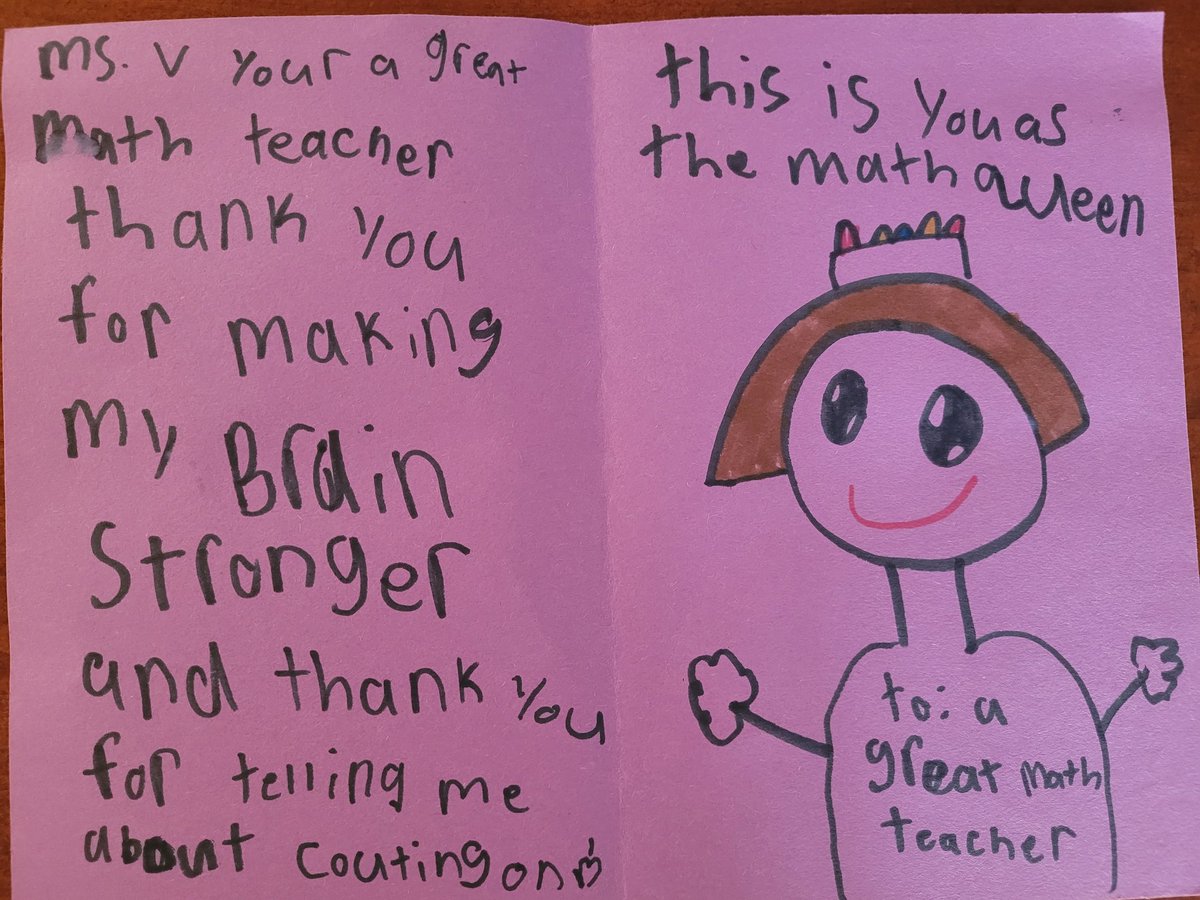 ms. v your a great
math teacher
thank you
for making
my Brain
Stronger
and thank you
for telling me
about couting on
this is you as
the math queen
to: a
great math
teacher